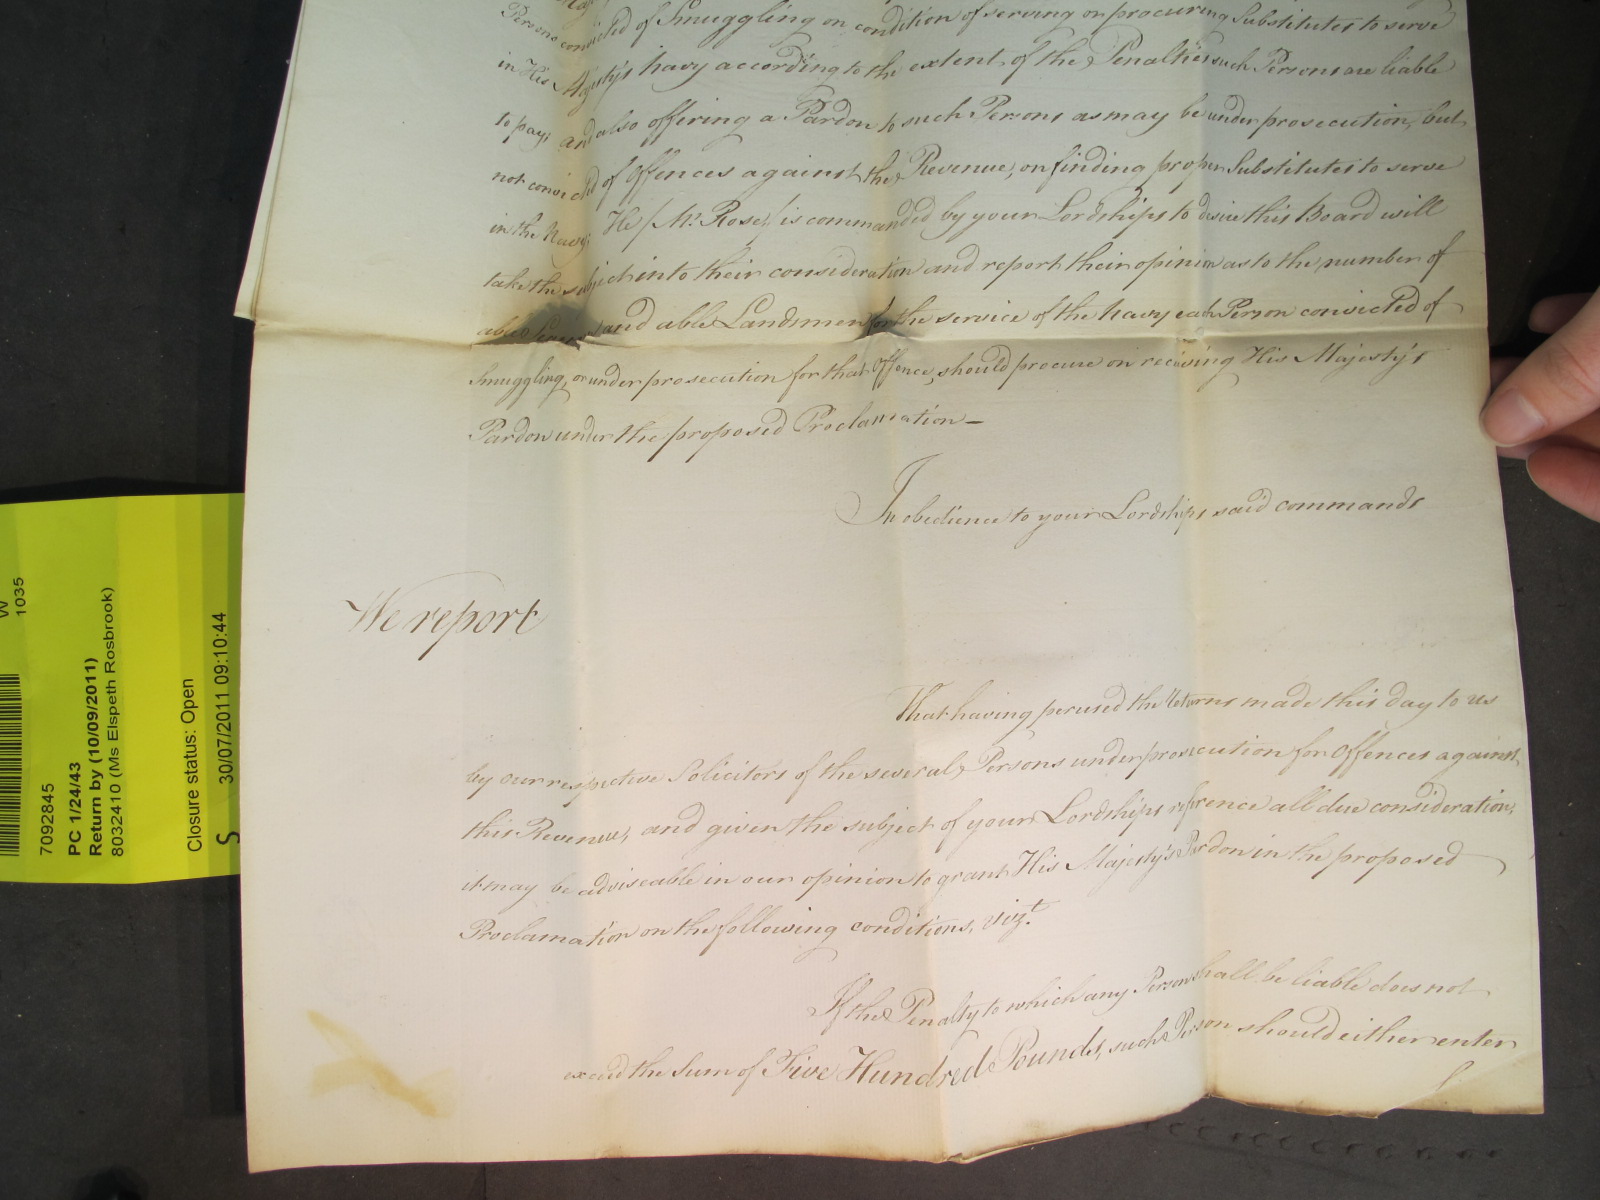 Persons convicted of Smuggling on condition of serving or procuring Substitutes to serve
in His Majesty's Navy according to the extent of the Penalties such Persons are liable
to pay; and also offering a Pardon to such Persons as may be under prosecution, but
not convicted of Offences against the Revenue, on finding proper Substitutes to serve
in the Navy; He /Mr. Rose,/ is commanded by your Lordships to desire this Board will
take the subject into their consideration and report their opinion as to the number of
able Seamen and able Landsmen for the service of the Navy each Person convicted of
Smuggling, or under prosecution for that Offence, should procure on receiving His Majesty's
Pardon under the proposed Proclamation —
In obedience to your Lordships said commands
We report
That having perused the Returns made this day to us
by our respective Solicitors of the several Persons under prosecution for Offences against
this Revenue, and given the subject of your Lordships reference all due consideration,
it may be adviseable in our opinion to grant His Majesty's Pardon in the proposed
Proclamation on the following conditions, vizt.
If the Penalty to which any Person shall be liable does not
exceed the Sum of Five Hundred Pounds, such Person should either enter
W
1035
7092845
PC 1/24/43
Return by (10/09/2011)
8032410 (Ms Elspeth Rosbrook)
Closure status: Open
S 30/07/2011 09:10:44